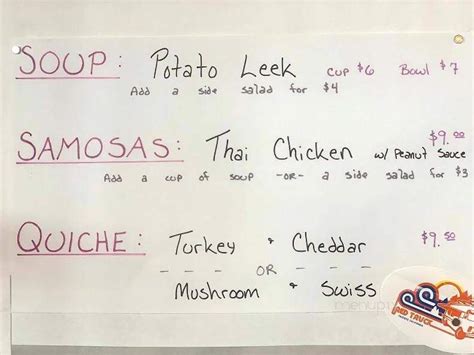 SOUP: Potato Leek CUP $6 Bowl $7
Add a side salad for $4
SAMOSAS: Thai Chicken w/ Peanut Sauce $9.00
Add a cup of soup -OR- a side salad for $3
QUICHE: Turkey & Cheddar $9.50
--- OR ---
Mushroom & Swiss
RED TRUCK